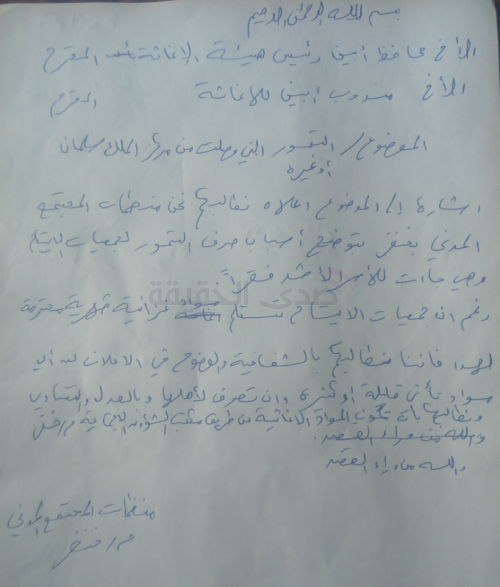 بسم الله الرحمن الرحيم
الأخ محافظ أبين رئيس هيئة الإغاثة المحترم
الأخ مندوب أبين للاغاثة المحترم
الموضوع/ التمور التي وصلت من مركز الملك سلمان
أو غيره
اشارة إلى الموضوع اعلاه نطالبكم نحن منظمات المجتمع
المدني بخنفر بتوضيح أسباب صرف التمور لجمعيات اليتام
وهي جاءت للأسر الأشد فقراً
صدى الحقيقة
رغم ان جمعيات الايتام تستلم مواد غذائية شهرية
لهذا فاننا نطالبكم بالشفافية والوضوح في الاعلان عن أي
مواد تأتي قليلة أو كثيرة وان تصرف لأهلها وبالعدل والتساوي
ونطالبكم بأن تكون المواد الاغاثية عن طريق مكتب الشؤون الاجتماعية م/ خنفر
والله من وراء القصد.
والله من وراء القصد
منظمات المجتمع المدني
م/ خنفر